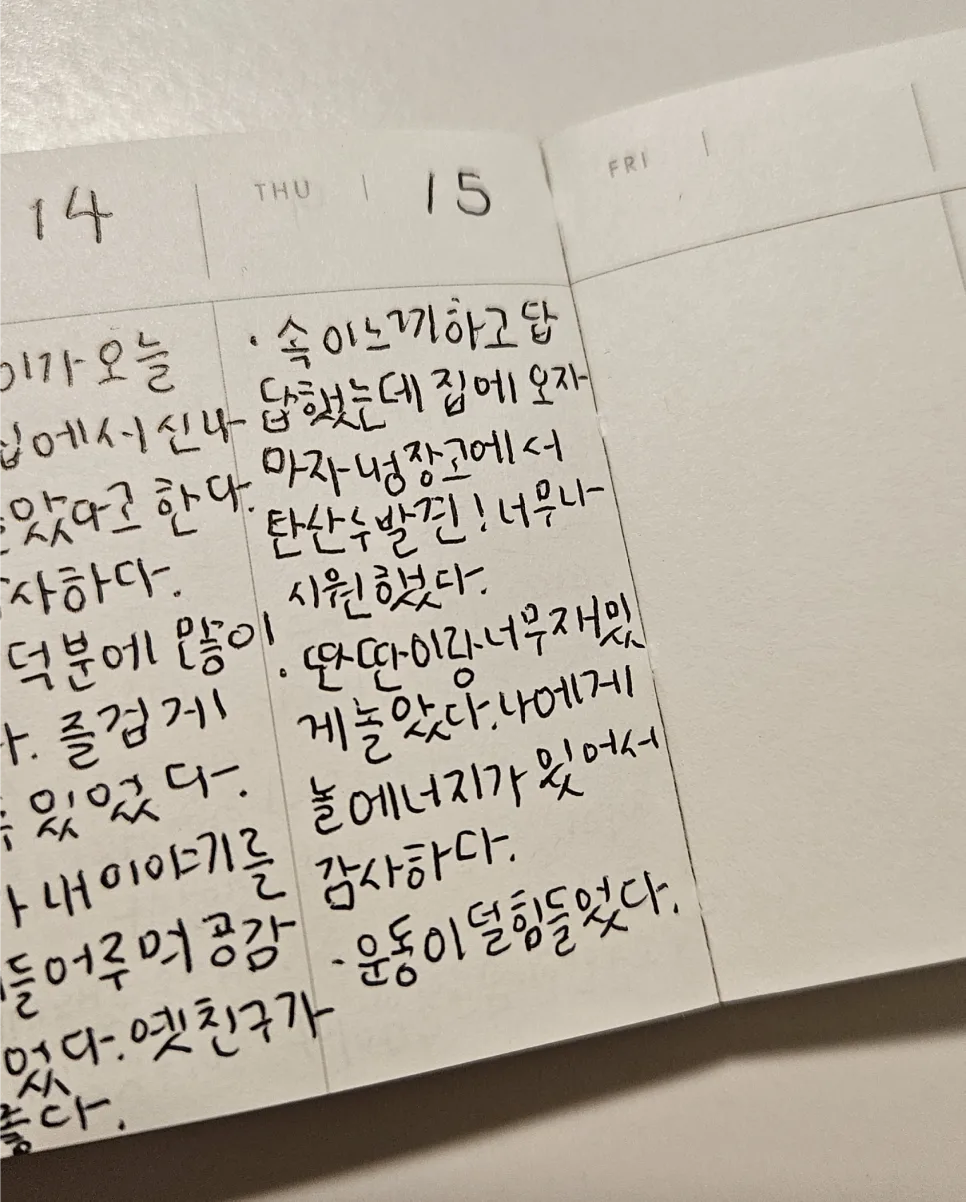 14
이가 오늘
집에서 신나
았다고 한다.
사하다.
덕분에 많이
다. 즐겁게
있었다.
내 이야기를
들어주며 공감
었다. 옛친구가
좋다.
THU 15
· 속이 느끼하고 답
답했는데 집에 오자
마자 냉장고에서
탄산수 발견! 너무나
시원했다.
· 딴딴이랑 너무 재밌
게 놀았다. 나에게
놀 에너지가 있어서
감사하다.
· 운동이 덜 힘들었다.
FRI